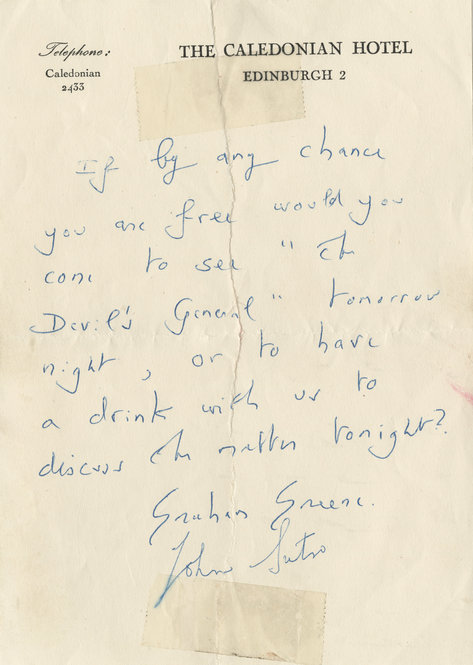 Telephone:
Caledonian
2433
THE CALEDONIAN HOTEL
EDINBURGH 2
If by any chance
you are free would you
come to see "the
Devil's General" tomorrow
night, or to have
a drink with us to
discuss the matter tonight?
Graham Greene.
John Sutro